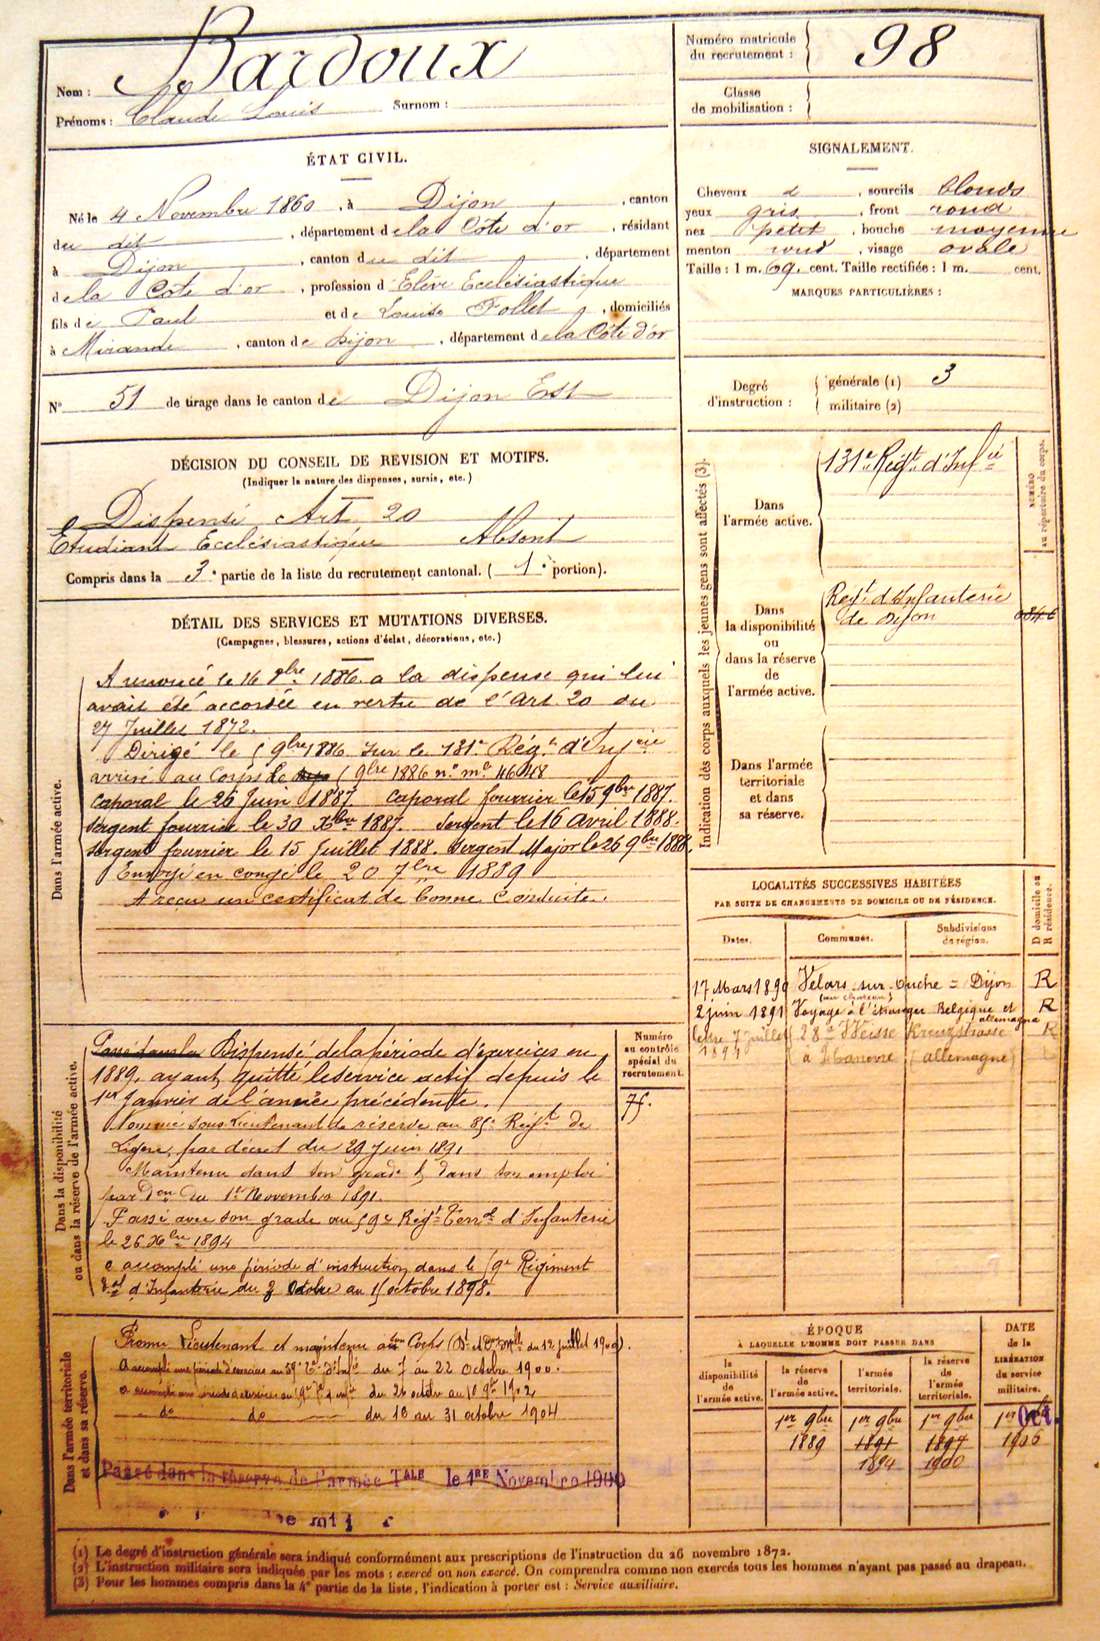 Nom : Bardoux
Prénoms : Claude Louis Surnom :
Numéro matricule du recrutement : 98
Classe de mobilisation :
ÉTAT CIVIL.
Né le 4 Novembre 1860, à Dijon, canton
du dit, département de la Côte d'or, résidant
à Dijon, canton du dit, département
de la Côte d'or, profession d'Elève Ecclésiastique
fils de Paul et de Louise Follet, domiciliés
à Mirande, canton de Dijon, département de la Côte d'or
N° 51 de tirage dans le canton de Dijon Est
SIGNALEMENT.
Cheveux d, sourcils blonds
yeux gris, front rond
nez petit, bouche moyenne
menton rond, visage ovale
Taille : 1 m. 69 cent. Taille rectifiée : 1 m. cent.
MARQUES PARTICULIÈRES :
Degré d'instruction : générale (1) 3
militaire (2)
DÉCISION DU CONSEIL DE REVISION ET MOTIFS.
(Indiquer la nature des dispenses, sursis, etc.)
Dispensé Art 20
Etudiant Ecclésiastique Absent
Compris dans la 3e partie de la liste du recrutement cantonal. (1e portion).
DÉTAIL DES SERVICES ET MUTATIONS DIVERSES.
(Campagnes, blessures, actions d'éclat, décorations, etc.)
Dans l'armée active.
A renoncé le 16 8bre 1886 a la dispense qui lui
avait été accordée en vertu de l'Art. 20 du
27 Juillet 1872.
Dirigé le 5 9bre 1886 sur le 131e Régt d'Infrie
arrivé au Corps le 5 9bre 1886 no me 4648
caporal le 26 Juin 1887. caporal fourrier le 15 9bre 1887.
Sergent fourrier le 30 Xbre 1887. Sergent le 16 Avril 1888.
Sergent fourrier le 15 Juillet 1888. Sergent Major le 26 9bre 1888.
Envoyé en congé le 20 7bre 1889
A reçu un certificat de bonne Conduite.
Indication des corps auxquels les jeunes gens sont affectés (3).
NUMÉRO au répertoire du corps.
Dans l'armée active. 131e Régt d'Infie
Dans la disponibilité ou dans la réserve de l'armée active. Régt d'Infanterie
de Dijon
Dans l'armée territoriale et dans sa réserve.
LOCALITÉS SUCCESSIVES HABITÉES
PAR SUITE DE CHANGEMENTS DE DOMICILE OU DE RÉSIDENCE.
Dates. Communes. Subdivisions de région. D domicile ou R résidence.
17 Mars 1890 Velars-sur-Ouche = Dijon R
(au château)
2 juin 1891 Voyage à l'étranger Belgique et allemagne R
7 juillet 1894 28 Weisse Kreuzstrasse R
à Hanovre (allemagne)
Dans la disponibilité ou dans la réserve de l'armée active.
Numéro au contrôle spécial du recrutement.
75.
Passé dans la Dispensé de la période d'exercices en
1889, ayant quitté le service actif depuis le
1er Janvier de l'année précédente.
Nommé sous-Lieutenant de réserve au 85e Régt de
Ligne, par décret du 29 Juin 1891
Maintenu dans son grade & dans son emploi
par Don du 1er Novembre 1891.
Passé avec son grade au 59e Régt Terral d'Infanterie
le 26 Xbre 1894
a accompli une période d'instruction dans le 59e Régiment
d'Infanterie du 3 Octobre au 15 octobre 1898.
Dans l'armée territoriale et dans sa réserve.
Promu Lieutenant et maintenu au Corps du 12 juillet 1900).
A accompli une période d'exercices au 59e Ter d'Infie du 7 au 22 Octobre 1900.
du 26 octobre au 10 9bre 1902
do do du 18 au 31 octobre 1904
Passé dans la réserve de l'armée Tale le 1re Novembre 1900
ÉPOQUE
À LAQUELLE L'HOMME DOIT PASSER DANS
la disponibilité de l'armée active. la réserve de l'armée active. l'armée territoriale. la réserve de l'armée territoriale.
DATE de la LIBÉRATION du service militaire.
1er 9bre 1er 9bre 1er 9bre 1er Oct.
1889 1891 1897 1906
1894 1900
(1) Le degré d'instruction générale sera indiqué conformément aux prescriptions de l'instruction du 26 novembre 1872.
(2) L'instruction militaire sera indiquée par les mots : exercé ou non exercé. On comprendra comme non exercés tous les hommes n'ayant pas passé au drapeau.
(3) Pour les hommes compris dans la 4e partie de la liste, l'indication à porter est : Service auxiliaire.